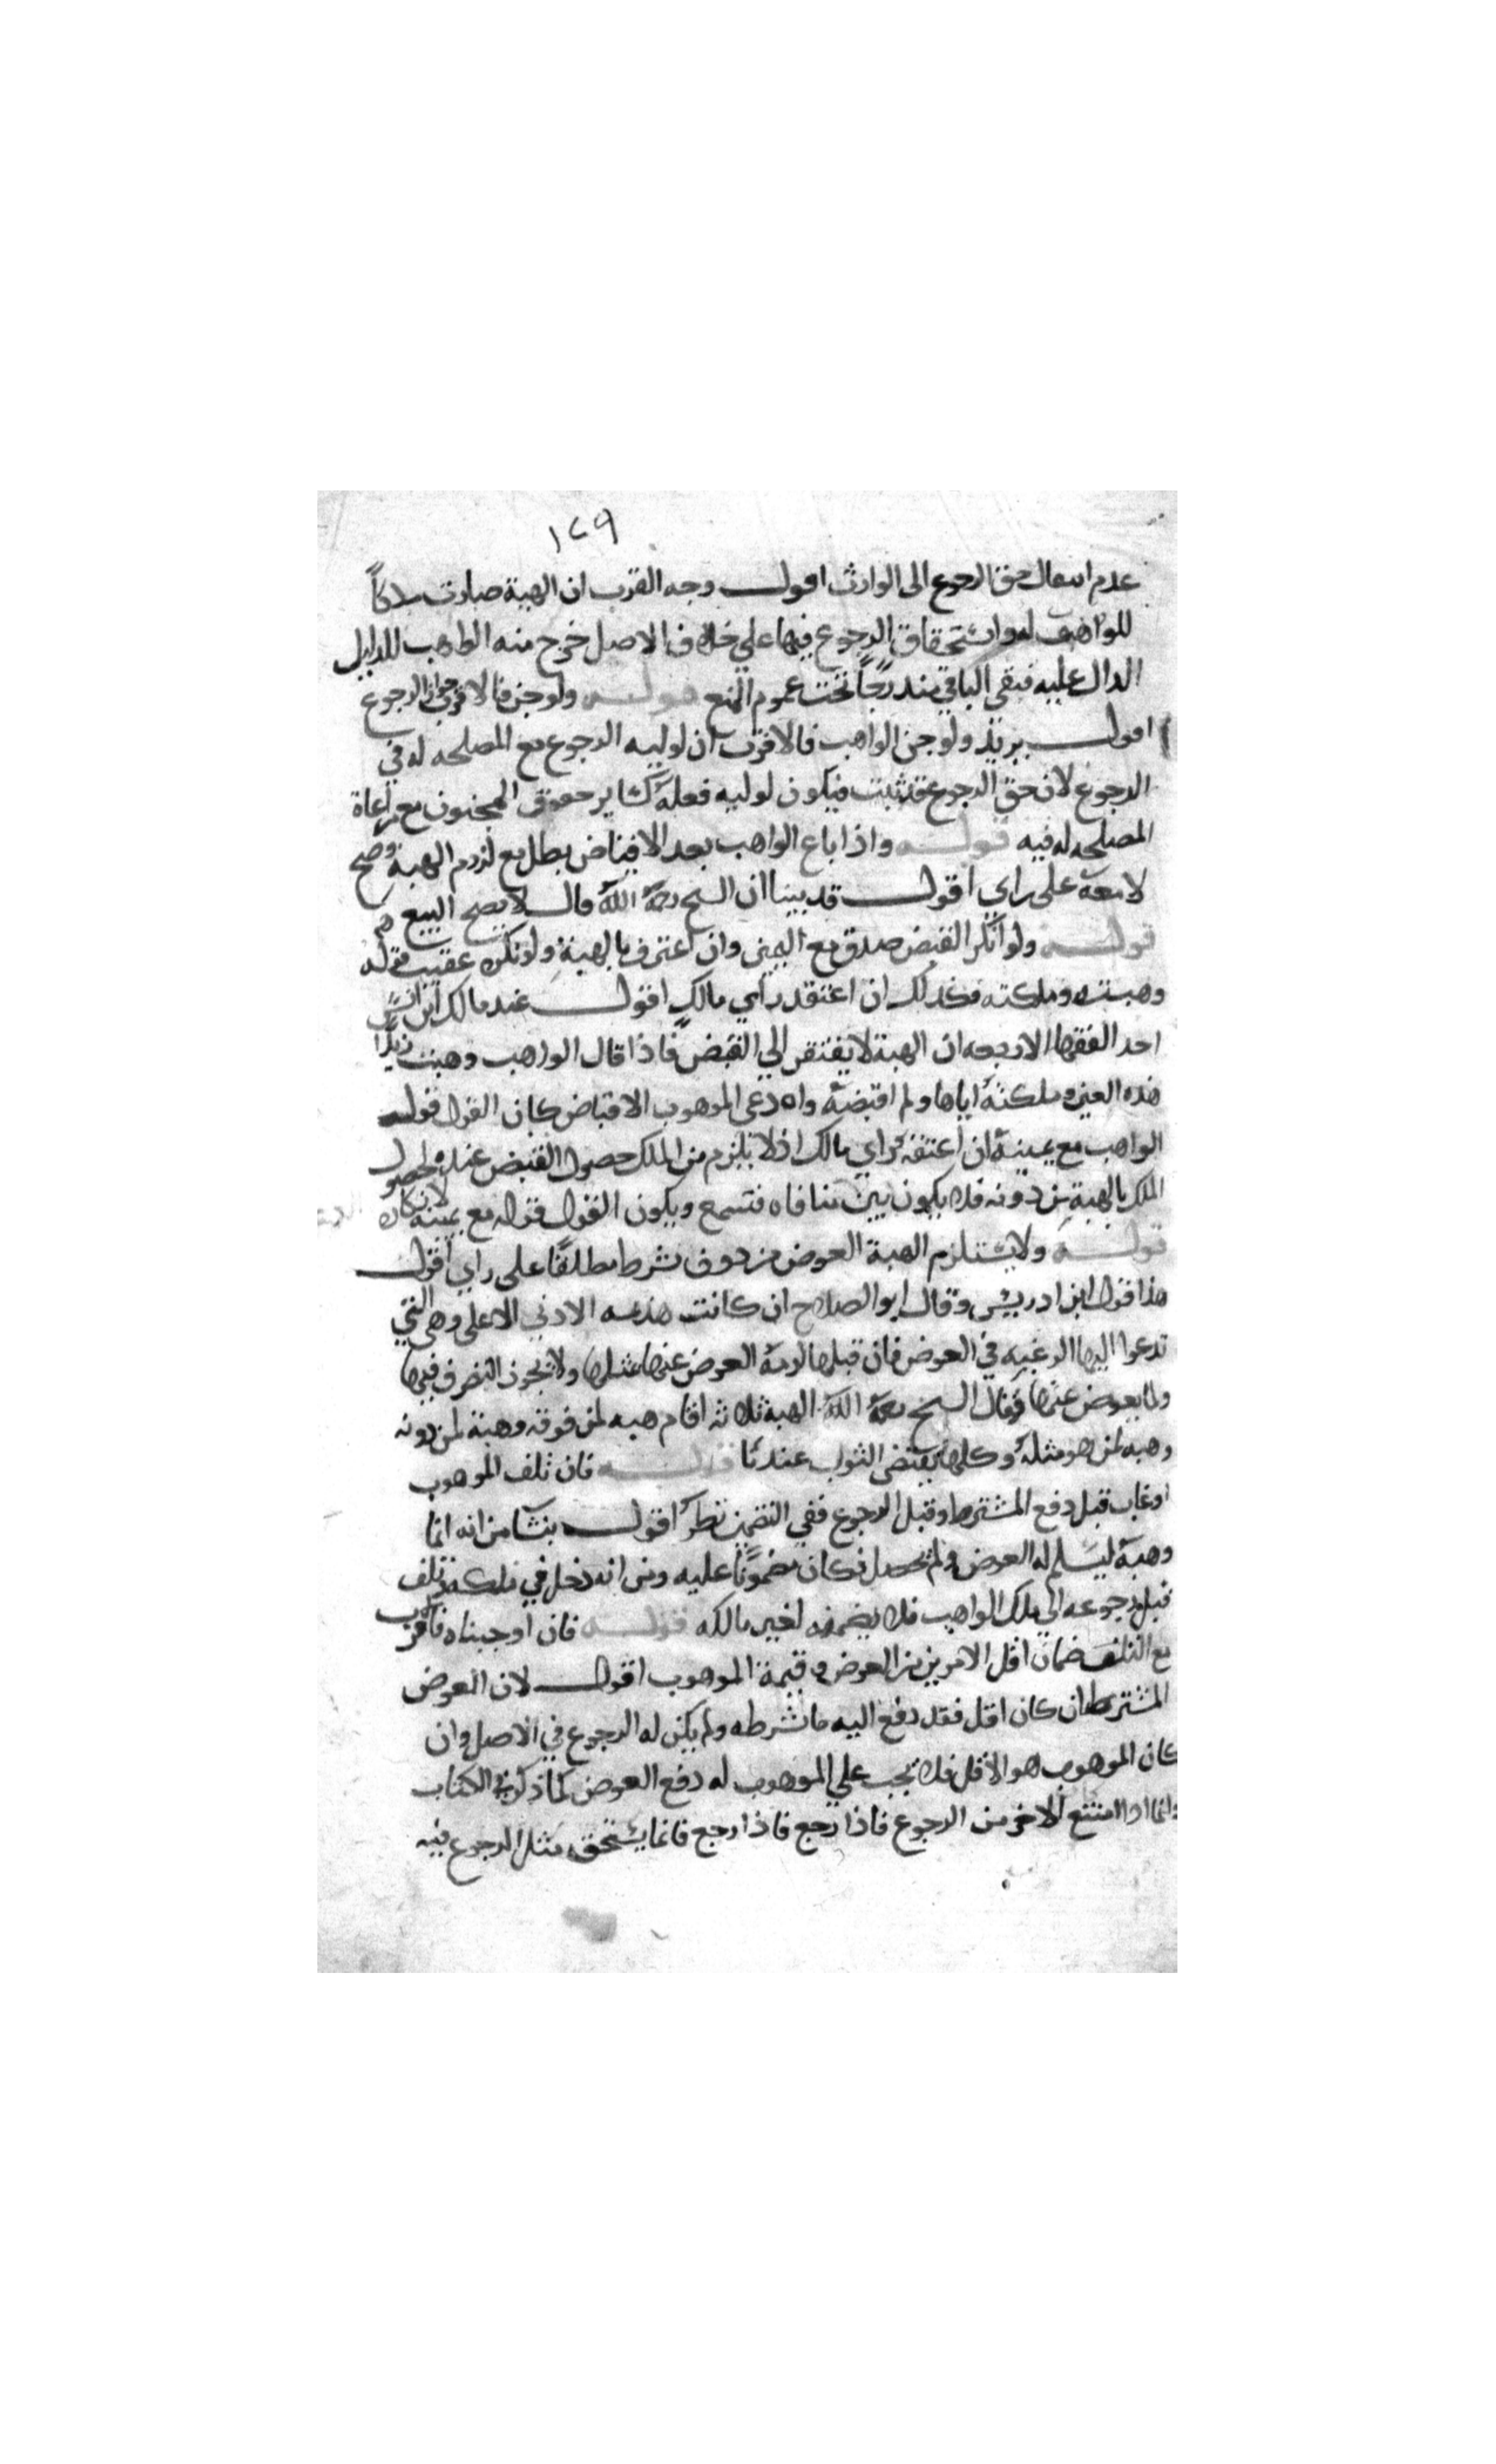 ١٤٩
عدم انتقال حق الرجوع الى الوارث اقول وجه القرب ان الهبة صارت ملكاً
للواهب له واستحقاق الرجوع فيها على خلاف الاصل خرج منه الواهب للدليل
الدال عليه فبقي الباقي مندرجاً تحت عموم المنع قوله ولو جن فالاقرب جواز الرجوع
اقول يريد ولو جن الواهب فالاقرب ان لوليه الرجوع مع المصلحه له في
الرجوع لان حق الرجوع قد ثبت فيكون لوليه فعله كساير حقوق المجنون مع مراعاة
المصلحه له فيه قوله واذا باع الواهب بعد الاقباض بطل مع لزوم الهبة وصح
لا معه على راي اقول قد بينا ان الشيخ رحمة الله قال لا يصح البيع
قوله ولو انكر القبض صدق مع اليمين وان اعترف بالهبة ولو نكره عقيب قوله
وهبته وملكته فكذلك ان اعتقد راي مالك اقول عند مالك ابن انس
احد الفقها الاربعه ان الهبة لا يفتقر الي القبض فاذا قال الواهب وهبت زيدا
هذه العين وملكته اياها ولم اقبضه وادعى الموهوب الاقباض كان القول قول
الواهب مع يمينه ان اعتقد راي مالك اذ لا يلزم من الملك حصول القبض عنده لحصول
الملك بالهبة من دونه فلا يكون بين منافاه فتسمع ويكون القول قوله مع يمينه لانكاره
قوله ولا يستلزم الهبة العوض من دون شرط مطلقًا على راي اقول
هذا قول ابن ادريس وقال ابو الصلاح ان كانت هديه الادني الاعلى وهي التي
تدعوا اليها الرغبه في العوض فان قبلها لزمه العوض عنها بمثلها ولا يجوز التصرف فيها
ولما يعوض عنها وقال الشيخ رحمة الله الهبة ثلاثه اقسام هبه لمن فوقه وهبة لمن دونه
وهبه لمن هو مثله وكلها يقتضى الثواب عندنا قوله فان تلف الموهوب
اوعاب قبل دفع المشترط وقبل الرجوع ففي التضمين نظر اقول ينشا من انه انما
وهبه ليسلم له العوض ولم يحصل فكان مضمونًا عليه ومن انه دخل في ملكه وتلف
قبل رجوعه الي ملك الواهب فلا يضمنه لغير مالكه قوله فان اوجبناه فالاقرب
مع التلف ضمان اقل الامرين من العوض وقيمة الموهوب اقول لان العوض
المشترط ان كان اقل فقد دفع اليه ما شرطه ولم يكن له الرجوع في الاصل وان
كان الموهوب هو الاقل فلا يجب علي الموهوب له دفع العوض كما ذكره في الكتاب
وانما اذا امتنع للاخر من الرجوع فاذا رجع فاذا رجع فانما يستحق مثل الرجوع فيه